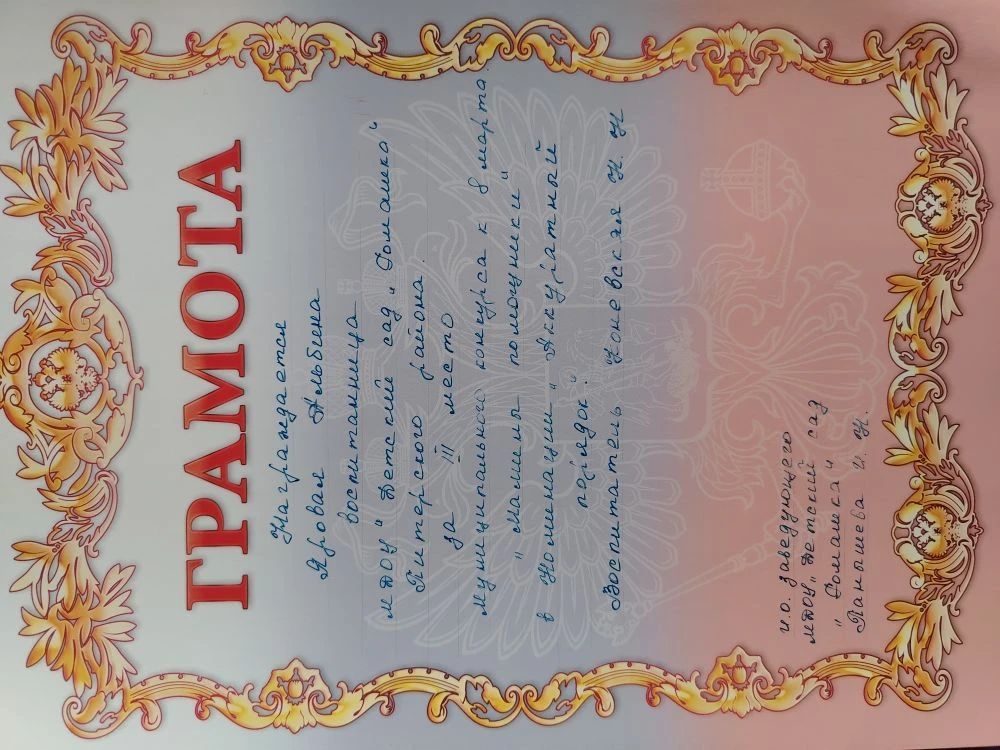 ГРАМОТА
Награждается
Яровая Альбина
воспитанница
МДОУ "Детский сад "Ромашка"
Питерского района.
за II место
муниципального конкурса к 8 марта
"Мамины помощники"
в Номинации "Аккуратный
порядок."
Воспитатель Коневская Н. Н
и.о. заведующего
МДОУ "Детский сад
"Ромашка"
Паньшева И. Н.